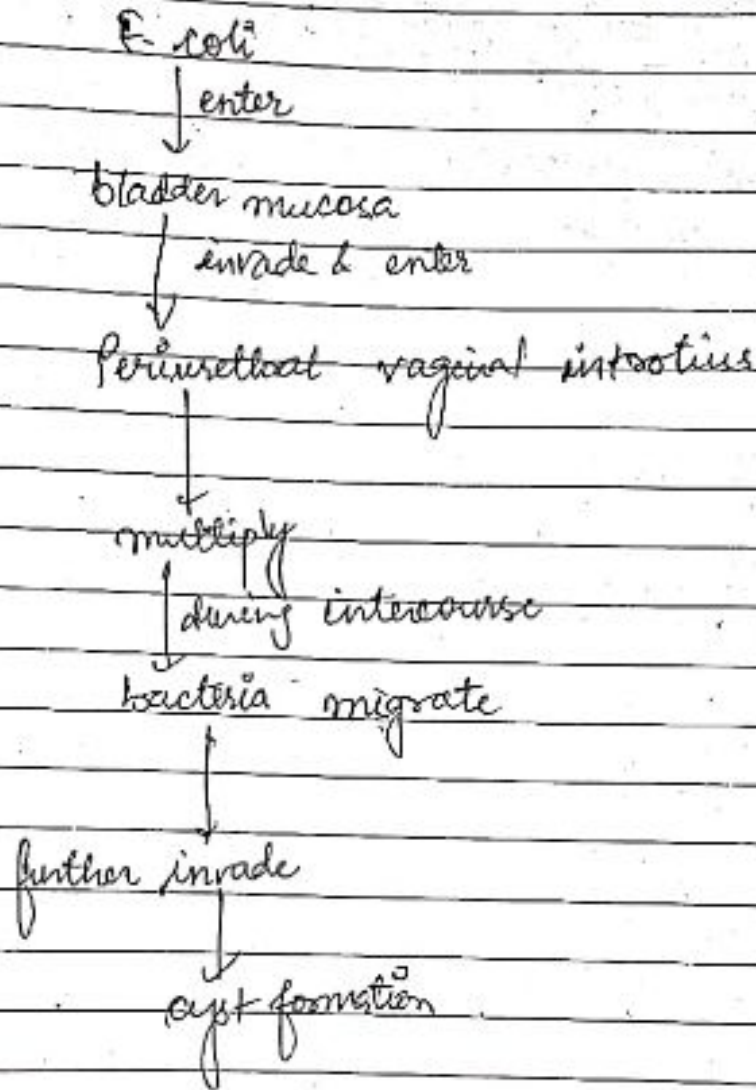 E coli
enter
bladder mucosa
invade & enter
Periurethral vaginal introtius
multiply
during intercourse
bacteria migrate
further invade
cyst formation